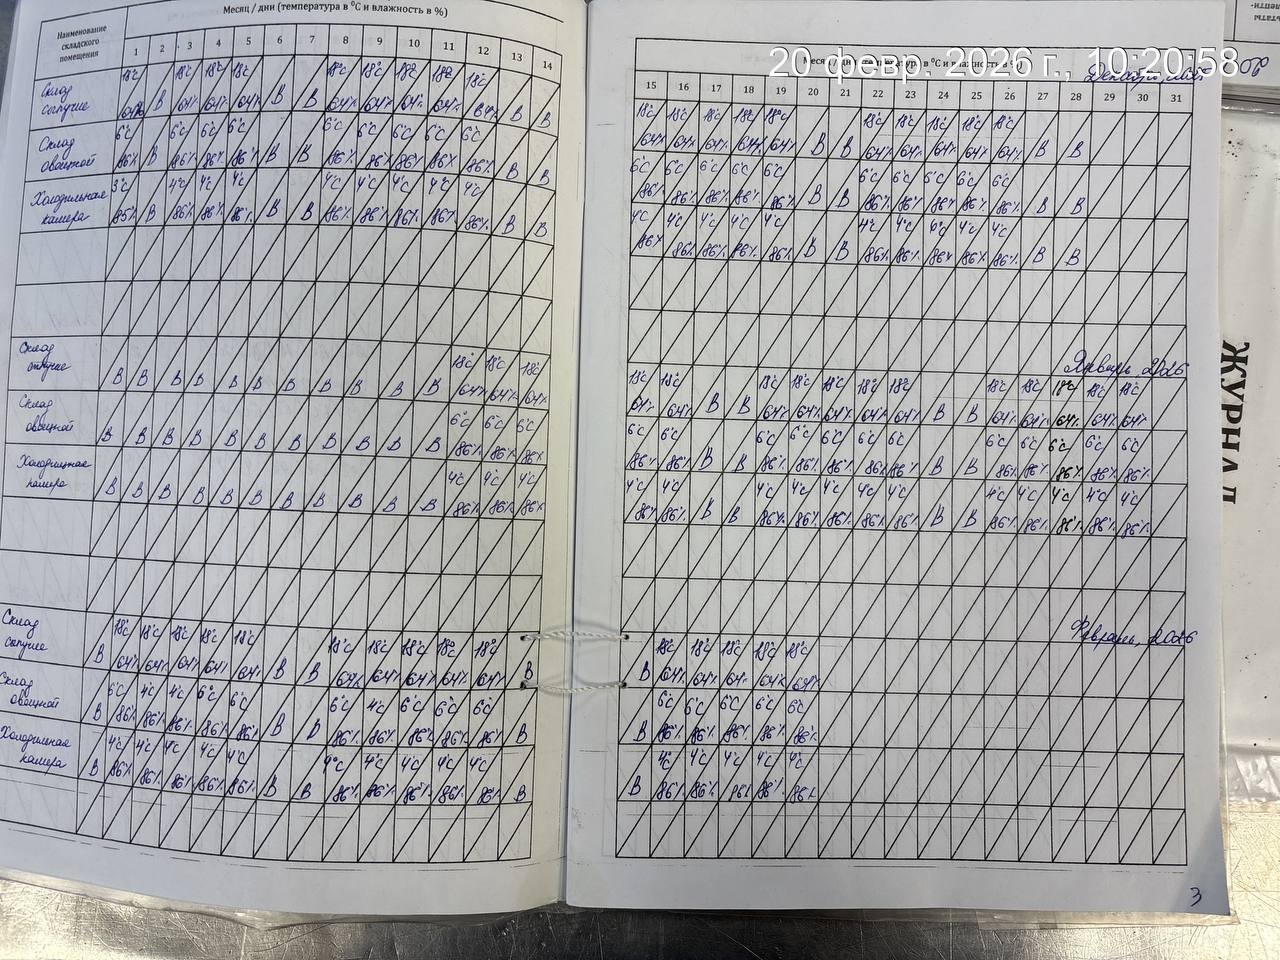 Месяц / дни (температура в °С и влажность в %)
Наименование складского помещения
1 2 3 4 5 6 7 8 9 10 11 12 13 14
Склад сыпучие
18°С 18°С 18°С 18°С 18°С 18°С 18°С 18°С 18°С
64% В 64% 64% 64% В В 64% 64% 64% 64% 64% В В
Склад овощной
6°С 6°С 6°С 6°С 6°С 6°С 6°С 6°С 6°С
86% В 86% 86% 86% В В 86% 86% 86% 86% 86% В В
Холодильная камера
3°С 4°С 4°С 4°С 4°С 4°С 4°С 4°С 4°С
85% В 86% 86% 86% В В 86% 86% 86% 86% 86% В В
Склад
18°С 18°С 18°С
В В В В В В В В В В В 64% 64% 64%
Склад овощной
6°С 6°С 6°С
В В В В В В В В В В В 86% 86% 86%
Холодильная камера
4°С 4°С 4°С
В В В В В В В В В В В 86% 86% 86%
Склад сыпучие
18°С 18°С 18°С 18°С 18°С 18°С 18°С 18°С 18°С 18°С
В 64% 64% 64% 64% 64% В В 64% 64% 64% 64% 64% В
Склад овощной
6°С 4°С 4°С 6°С 6°С 6°С 4°С 6°С 6°С 6°С
В 86% 86% 86% 86% 86% В В 86% 86% 86% 86% 86% В
Холодильная камера
4°С 4°С 4°С 4°С 4°С 4°С 4°С 4°С 4°С 4°С
В 86% 86% 86% 86% 86% В В 86% 86% 86% 86% 86% В
20 февр. 2026 г., 10:20:58
Месяц / дни (температура в °С и влажность в %)
15 16 17 18 19 20 21 22 23 24 25 26 27 28 29 30 31
18°С 18°С 18°С 18°С 18°С 18°С 18°С 18°С 18°С 18°С
64% 64% 64% 64% 64% В В 64% 64% 64% 64% 64% В В
6°С 6°С 6°С 6°С 6°С 6°С 6°С 6°С 6°С 6°С
86% 86% 86% 86% 86% В В 86% 86% 86% 86% 86% В В
4°С 4°С 4°С 4°С 4°С 4°С 4°С 4°С 4°С
86% 86% 86% 86% 86% В В 86% 86% 86% 86% 86% В В
Январь 2026
18°С 18°С 18°С 18°С 18°С 18°С 18°С 18°С 18°С 18°С 18°С 18°С
64% 64% В В 64% 64% 64% 64% 64% В В 64% 64% 64% 64% 64%
6°С 6°С 6°С 6°С 6°С 6°С 6°С 6°С 6°С 6°С 6°С 6°С
86% 86% В В 86% 86% 86% 86% 86% В В 86% 86% 86% 86% 86%
4°С 4°С 4°С 4°С 4°С 4°С 4°С 4°С 4°С 4°С 4°С 4°С
86% 86% В В 86% 86% 86% 86% 86% В В 86% 86% 86% 86% 86%
Февраль, 2026
18°С 18°С 18°С 18°С 18°С
В 64% 64% 64% 64% 64%
6°С 6°С 6°С 6°С 6°С
В 86% 86% 86% 86% 86%
4°С 4°С 4°С 4°С 4°С
В 86% 86% 86% 86% 86%
3
ЖУРНАЛ